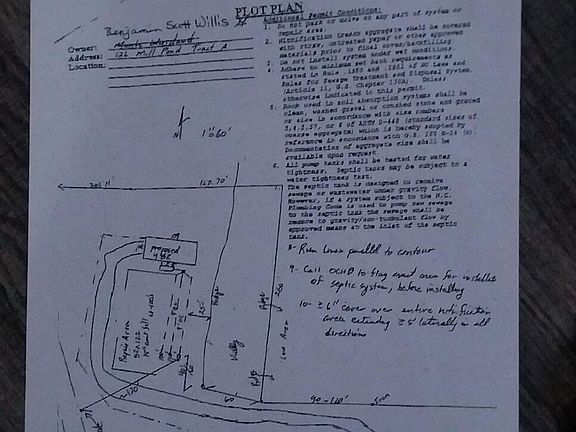 PLOT PLAN
Benjamin Scott Willis
Owner:
Address: 126 Mill Pond Tract A
Location:
N
1"=60'
Additional Permit Conditions:
1. Do not park or drive on any part of system or
repair area.
2. Nitrification trench aggregate shall be covered
with straw, untreated paper or other approved
materials prior to final cover/backfilling.
3. Do not install system under wet conditions.
4. Adhere to minimum set back requirements as
stated in Rule .1950 and .1951 of NC Laws and
Rules for Sewage Treatment and Disposal System,
(Article 11, G.S. Chapter 130A), Unless
otherwise indicated in this permit.
5. Rock used in soil absorption systems shall be
clean, washed gravel or crushed stone and graded
or size in accordance with size numbers
of ASTM D-448 (standard sizes of
coarse aggregate) which is hereby adopted by
reference in accordance with G.S. 150
Documentation of aggregate size shall be
available upon request.
6. All pump tanks shall be tested for water
tightness. Septic tanks may be subject to a
water tightness test.
The septic tank is designed to receive
sewage or wastewater under gravity flow.
However, if a system subject to the N.C.
Plumbing Code is used to pump raw sewage
to the septic tank the sewage shall be
reduce to gravity/non-turbulent flow by
approved means at the inlet of the septic
tank.
8- Run lines parallel to contour
9- Call OCHD to flag exact area for installation
of septic system, before installing
10- ≥ 6" cover over entire nitrification
area extending ≥ 5' laterally in all
directions
167.70'
Proposed
4 BR
Repair Area
Ridge
Valley
Ridge
Low Area
60'
90-110'